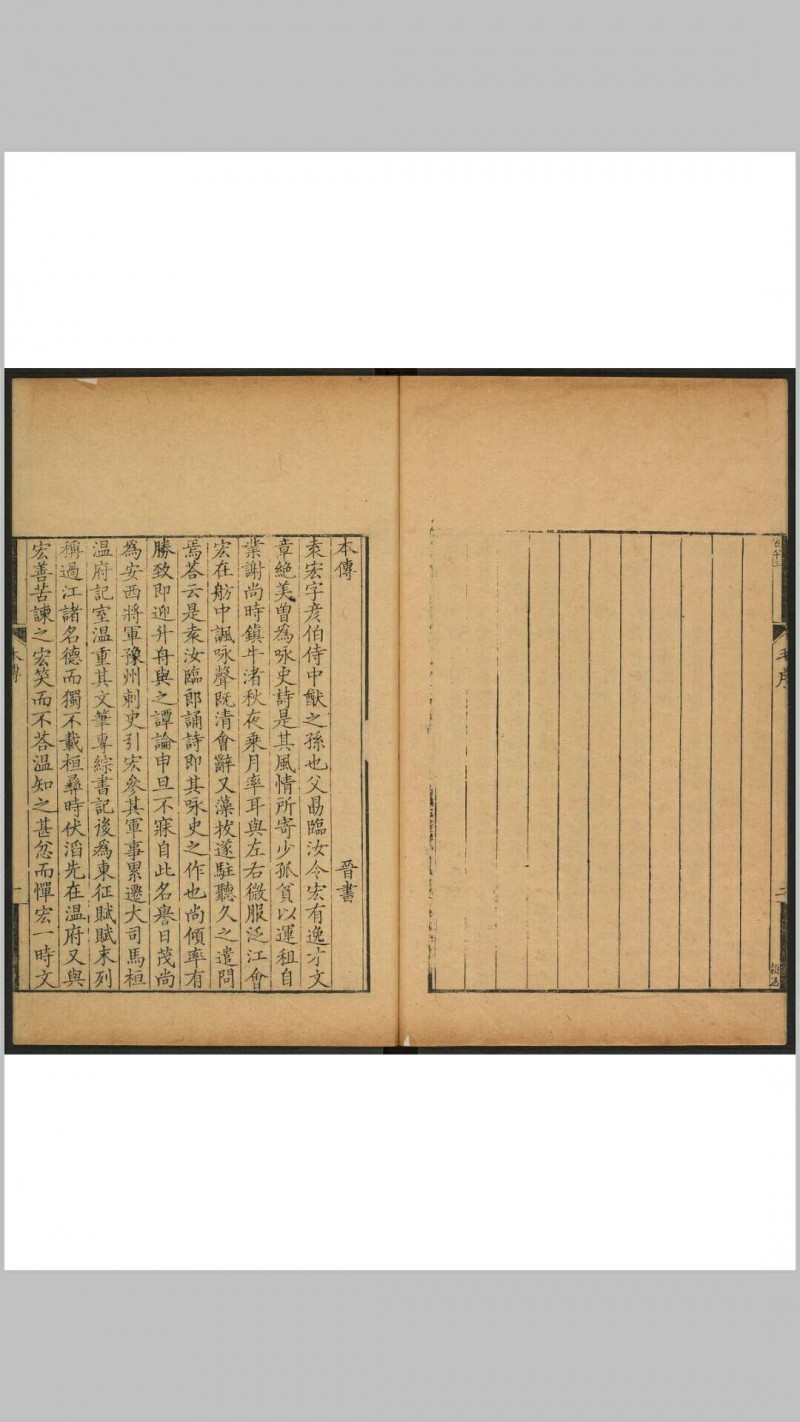 本傳 晉書
袁宏字彦伯侍中猷之孫也父勗臨汝令宏有逸才文
章絶美曽為咏史詩是其風情所寄少孤貧以運租自
業謝尚時鎮牛渚秋夜乗月率耳與左右微服泛江會
宏在舫中諷咏聲旣清會辭又藻拔遂駐聽久之遣問
焉荅云是袁汝臨郎誦詩即其咏史之作也尚傾率有
勝致即迎升舟與之譚論申旦不寐自此名譽日茂尚
為安西將軍豫州刺史引宏參其軍事累遷大司馬桓
温府記室温重其文筆專綜書記後為東征賦賦末列
稱過江諸名德而獨不載桓彛時伏滔先在温府又與
宏善苦諫之宏笑而不荅温知之甚忿而憚宏一時文
本傳
一